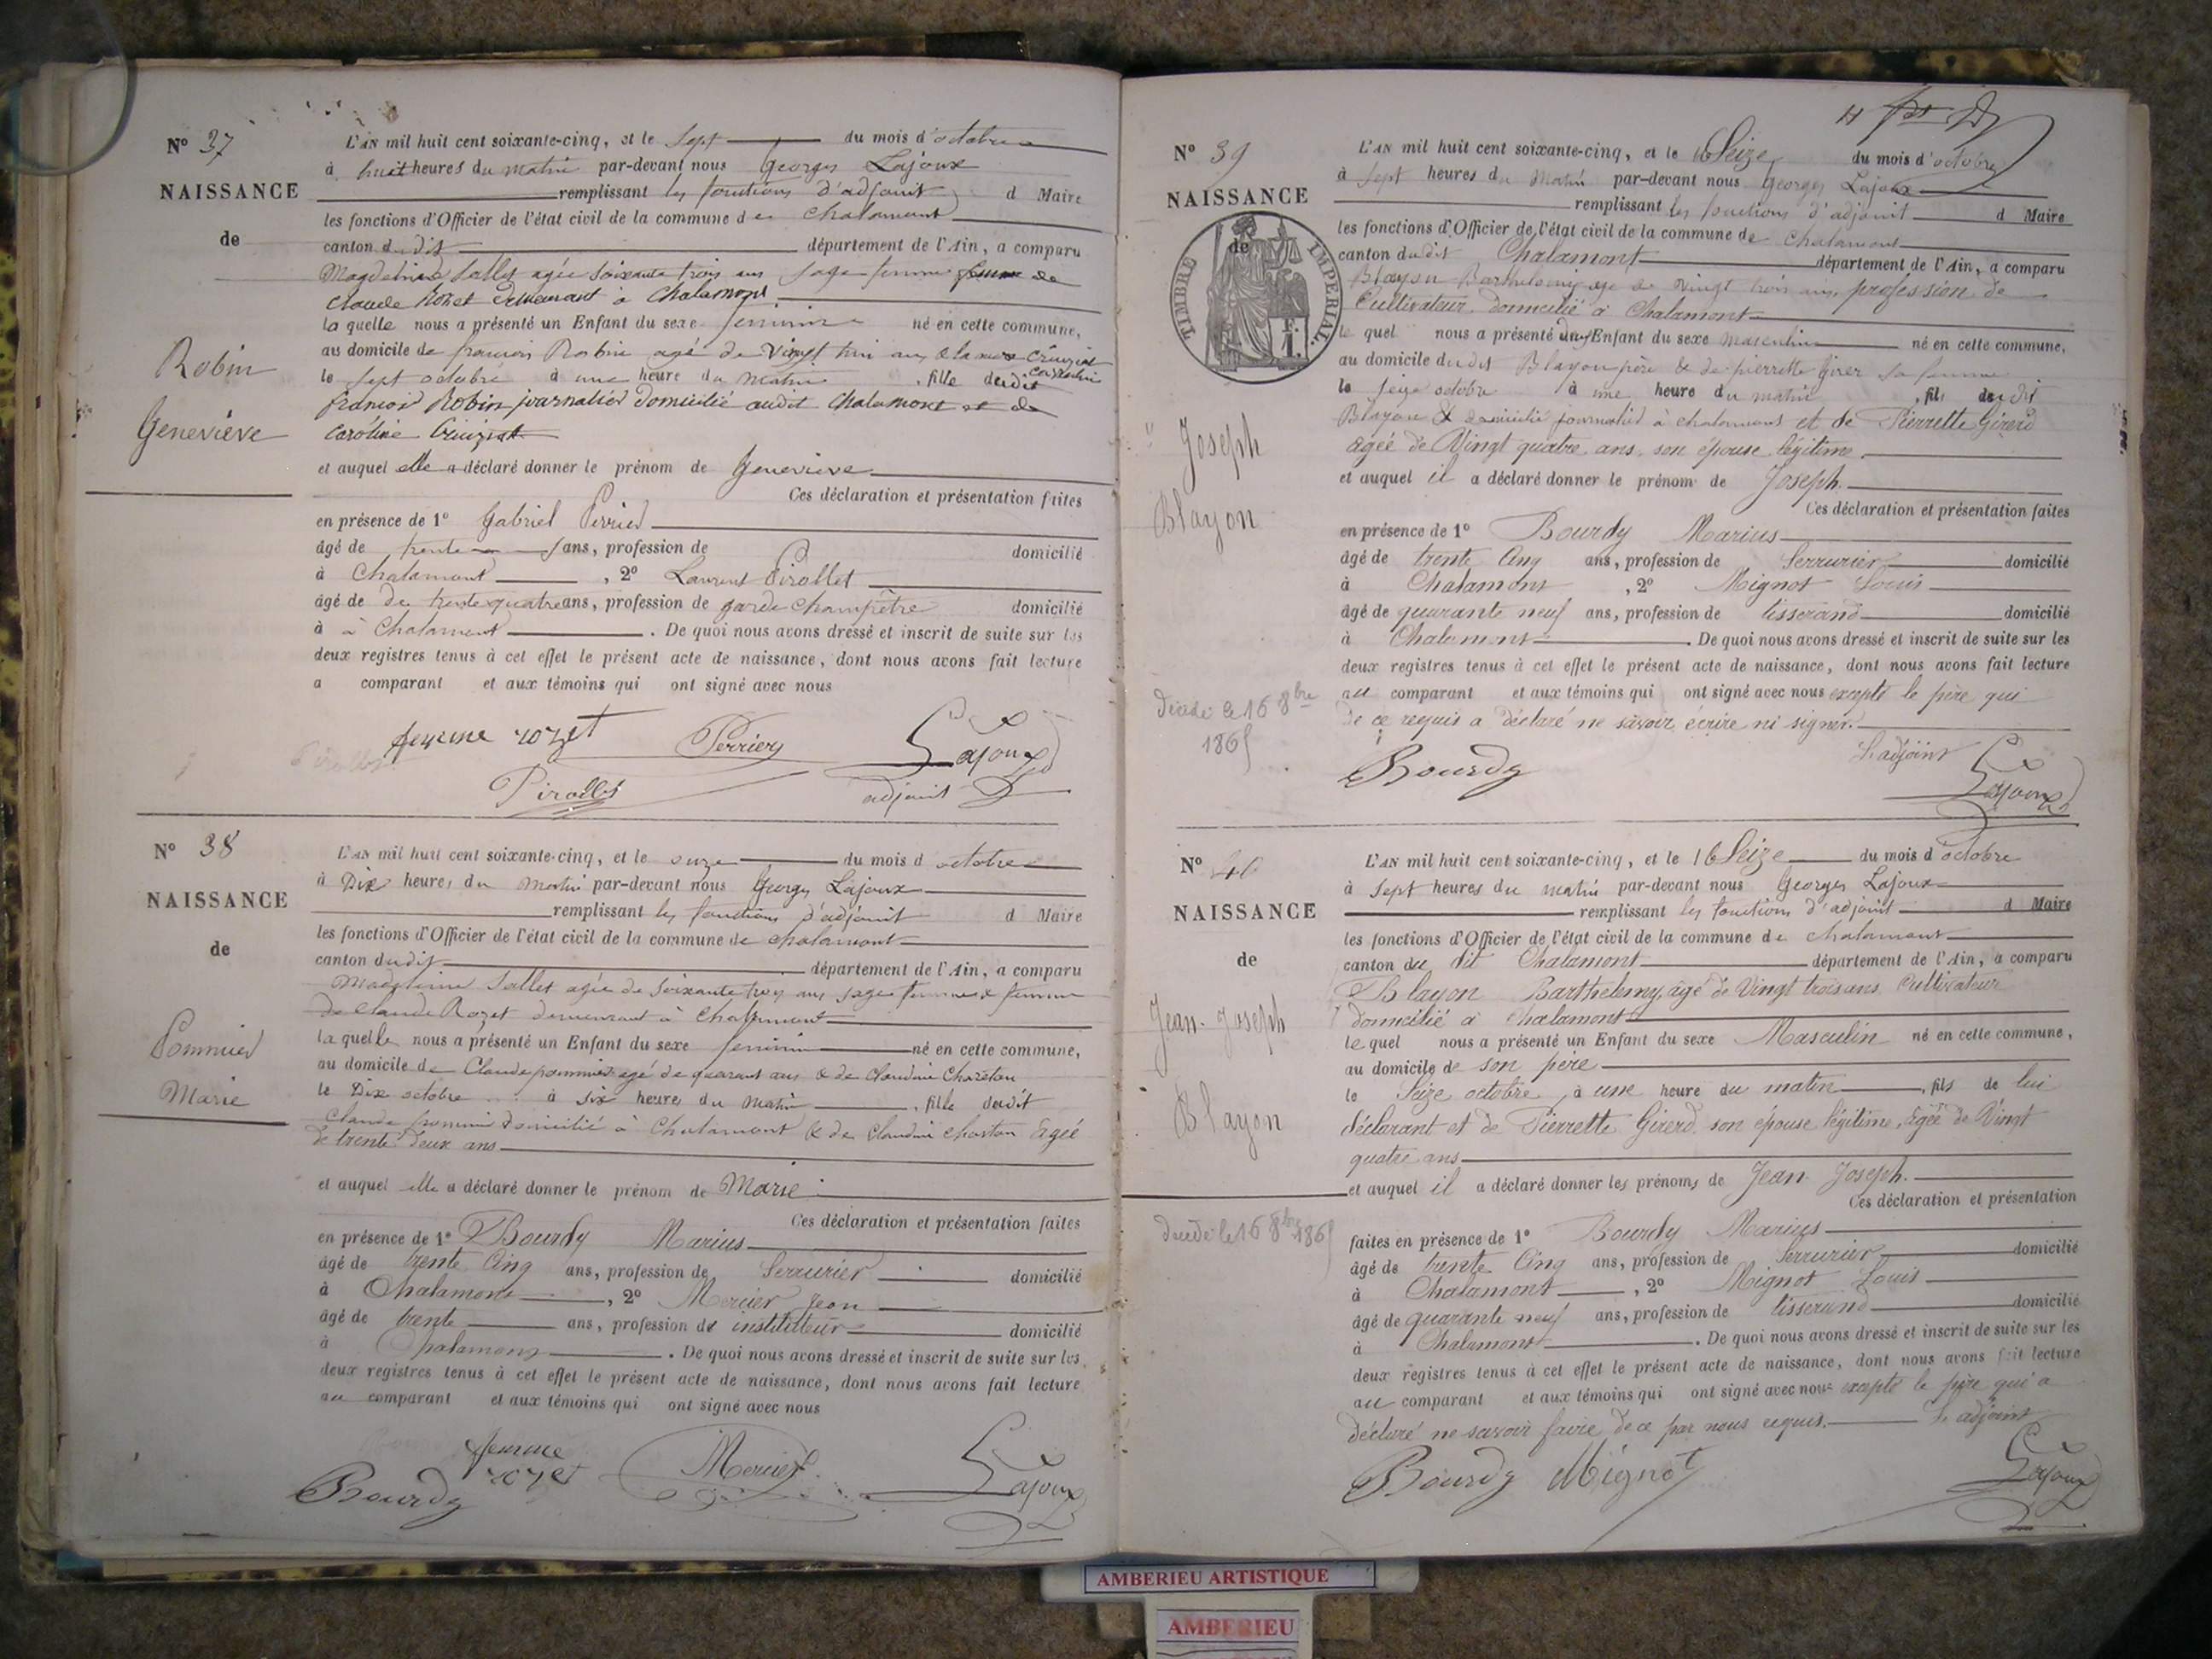 N° 37
NAISSANCE
de
Robin
Geneviève
L'AN mil huit cent soixante-cinq, et le Sept du mois d'octobre
à huit heures du matin par-devant nous Georges Lajoux
remplissant les fonctions d'adjoint d Maire
les fonctions d'Officier de l'état civil de la commune de Chalamont
canton dudit département de l'Ain, a comparu
Magdeleine Sallet agée soixante trois ans sage femme femme de
Claude Rozet demeurant à Chalamont
la quelle nous a présenté un Enfant du sexe féminin né en cette commune,
au domicile de françois Robin agé de vingt trois ans & la
le sept octobre à une heure du matin, fille dudit
françois Robin journalier domicilié audit Chalamont et de
Caroline
et auquel elle a déclaré donner le prénom de Geneviève
Ces déclaration et présentation faites
en présence de 1° Gabriel Perrier
âgé de trente ans, profession de domicilié
à Chalamont, 2° Laurent Pirollet
âgé de de trente quatre ans, profession de garde Champêtre domicilié
à à Chalamont. De quoi nous avons dressé et inscrit de suite sur les
deux registres tenus à cet effet le présent acte de naissance, dont nous avons fait lecture
a comparant et aux témoins qui ont signé avec nous
femme rozet Perrier Lajoux
Pirollet adjoint
N° 38
NAISSANCE
de
Pommier
Marie
L'AN mil huit cent soixante-cinq, et le onze du mois d octobre
à Dix heures du matin par-devant nous Georges Lajoux
remplissant les fonctions d'adjoint d Maire
les fonctions d'Officier de l'état civil de la commune de chalamont
canton dudit département de l'Ain, a comparu
Magdeleine Sallet agée de soixante trois ans sage femme & femme
de Claude Rozet demeurant à Chalamont
la quelle nous a présenté un Enfant du sexe féminin né en cette commune,
au domicile de Claude pommier agé de quarant ans & de Claudine Charetan
le Dix octobre à six heures du matin, fille dudit
Claude pommier domicilié à Chalamont & de Claudine Agée
de trente deux ans
et auquel elle a déclaré donner le prénom de Marie
Ces déclaration et présentation faites
en présence de 1° Bourdy Marius
âgé de trente Cinq ans, profession de Serrurier domicilié
à Chalamont, 2° Mercier Jean
âgé de trente ans, profession de instituteur domicilié
à Chalamont. De quoi nous avons dressé et inscrit de suite sur les
deux registres tenus à cet effet le présent acte de naissance, dont nous avons fait lecture
au comparant et aux témoins qui ont signé avec nous
femme
Bourdy rozet Mercier Lajoux
N° 39
NAISSANCE
de
TIMBRE IMPERIAL
Joseph
Blayon
Décédé le 16 8bre
1865
L'AN mil huit cent soixante-cinq, et le 16 Seize du mois d'octobre
à Sept heures du Matin par-devant nous Georges Lajoux
remplissant les fonctions d'adjoint d Maire
les fonctions d'Officier de l'état civil de la commune de Chalamont
canton dudit Chalamont département de l'Ain, a comparu
Blayon Barthelemy age de vingt trois ans, profession de
Cultivateur domicilié à Chalamont
le quel nous a présenté un Enfant du sexe masculin né en cette commune,
au domicile dudit Blayon père & de pierrette Girer sa femme
le seize octobre à une heure du matin, fils dudit
Blayon & domicilié journalier à chalamont et de Pierrette Girerd
agée de Vingt quatre ans son épouse légitime
et auquel il a déclaré donner le prénom de Joseph.
Ces déclaration et présentation faites
en présence de 1° Bourdy Marius
âgé de trente Cinq ans, profession de Serrurier domicilié
à Chalamont, 2° Mignot Louis
âgé de quarante neuf ans, profession de tisserand domicilié
à Chalamont. De quoi nous avons dressé et inscrit de suite sur les
deux registres tenus à cet effet le présent acte de naissance, dont nous avons fait lecture
au comparant et aux témoins qui ont signé avec nous excepté le père qui
de ce requis a déclaré ne savoir écrire ni signer.
Bourdy L'adjoint Lajoux
N° 40
NAISSANCE
de
Jean-Joseph
Blayon
Décédé le 16 8bre 1865
L'AN mil huit cent soixante-cinq, et le 16 Seize du mois d'octobre
à sept heures du matin par-devant nous Georges Lajoux
remplissant les fonctions d'adjoint d Maire
les fonctions d'Officier de l'état civil de la commune de chalamont
canton du dit Chalamont département de l'Ain, a comparu
Blayon Barthelemy, âgé de Vingt trois ans cultivateur
domicilié à Chalamont
le quel nous a présenté un Enfant du sexe Masculin né en cette commune,
au domicile de son père
le Seize octobre, à une heure du matin, fils de lui
déclarant et de Pierrette Girerd son épouse légitime, agée de Vingt
quatre ans
et auquel il a déclaré donner les prénoms de Jean Joseph.
Ces déclaration et présentation
faites en présence de 1° Bourdy Marius
âgé de trente Cinq ans, profession de Serrurier domicilié
à Chalamont, 2° Mignot Louis
âgé de quarante neuf ans, profession de tisserand domicilié
à Chalamont. De quoi nous avons dressé et inscrit de suite sur les
deux registres tenus à cet effet le présent acte de naissance, dont nous avons fait lecture
au comparant et aux témoins qui ont signé avec nous excepté le père qui a
déclaré ne savoir faire de ce par nous requis. L'adjoint
Bourdy Mignot Lajoux
AMBERIEU ARTISTIQUE
AMBERIEU